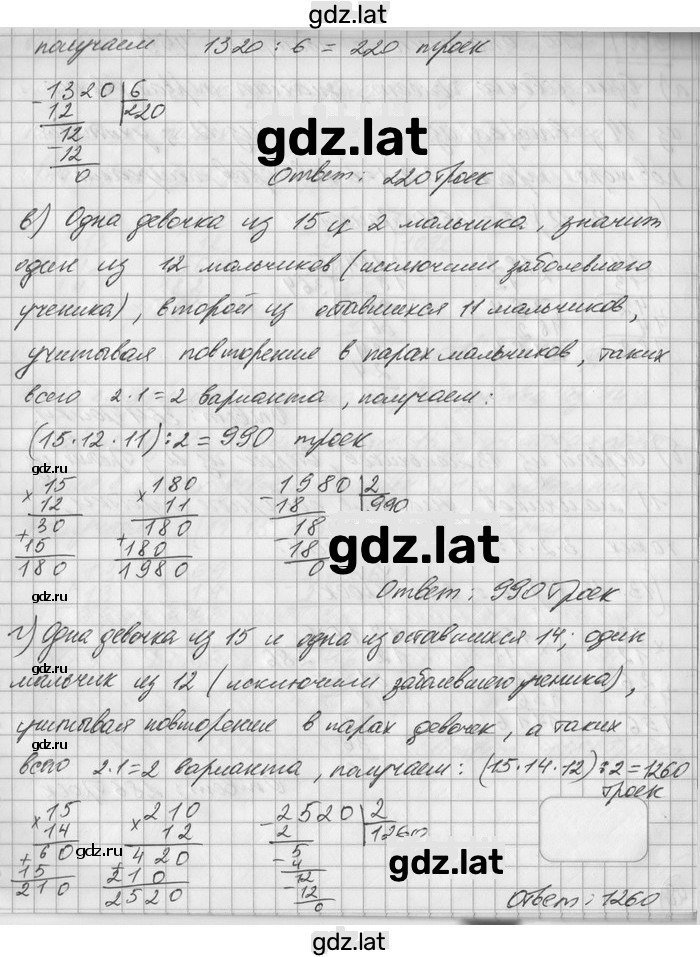 gdz.lat
получаем 1320 : 6 = 220 троек
- 1320 | 6
12 220
12
- 12
0
gdz.lat
Ответ: 220 троек
в) Одна девочка из 15 и 2 мальчика, значит
один из 12 мальчиков (исключили заболевшего
ученика), второй из оставшихся 11 мальчиков,
учитывая повторение в парах мальчиков, таких
всего 2·1=2 варианта, получаем:
(15·12·11):2=990 троек
gdz.ru gdz.ru
× 15 × 180 - 1980 | 2
12 11 18 990
+ 30 + 180 - 18
15 180 18
180 1980 0
gdz.lat
gdz.ru
Ответ: 990 троек
г) Одна девочка из 15 и одна из оставшихся 14; один
мальчик из 12 (исключили заболевшего ученика),
учитывая повторение в парах девочек, а таких
всего 2·1=2 варианта, получаем: (15·14·12):2=1260
троек
gdz.ru gdz.ru
× 15 × 210 - 2520 | 2
14 12 2 1260
+ 60 + 420 5
15 210 - 4
210 2520 12
- 12
0
Ответ: 1260
gdz.lat